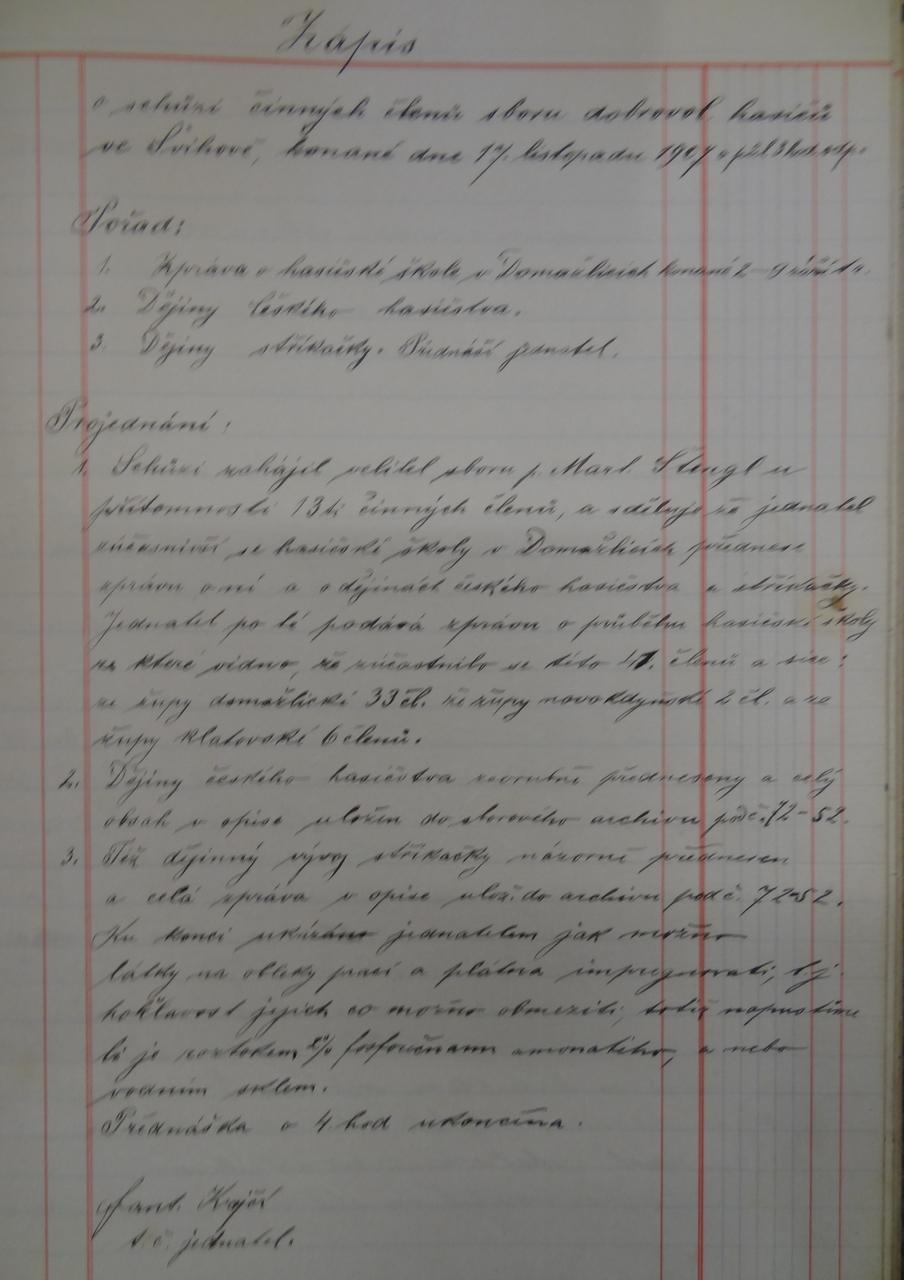 Zápis
o schůzi činných členů sboru dobrovol. hasičů
ve Švihově, konané dne 17. listopadu 1907 o půl 3 hod. odp.
Pořad:
1. Zpráva o hasičské škole v Domažlicích konané 2–9 září t.r.
2. Dějiny českého hasičstva.
3. Dějiny stříkačky. Přednáší jednatel.
Projednání:
1. Schůzi zahájil velitel sboru p. Mart. Štengl u
přítomnosti 13ti činných členů, a sděluje že jednatel
zúčasnivší se hasičské školy v Domažlicích přednese
zprávu o ní a o dějinách českého hasičstva a stříkačky.
Jednatel po té podává zprávu o průběhu hasičské školy
ze které vidno, že zúčastnilo se této 41. členů a sice:
ze župy domažlické 33 čl. ze župy novokdyňské 2 čl. a ze
župy klatovské 6 členů.
2. Dějiny českého hasičstva zevrubně předneseny a celý
obsah v opise uložen do sborového archivu pod č. 72-52.
3. Též dějinný vývoj stříkačky názorně přednesen
a celá zpráva v opise ulož. do archivu pod č. 72-52.
Ku konci ukázáno jednatelem jak možno
látky na obleky prací a plátna impregnovati, t.j.
hořlavost jejich co možno obmeziti, totiž napustíme
li je roztokem % fosforečnanu amonatého, a nebo
vodním sklem.
Přednáška o 4 hod ukončena.
Frant. Krejčí
t. č. jednatel.